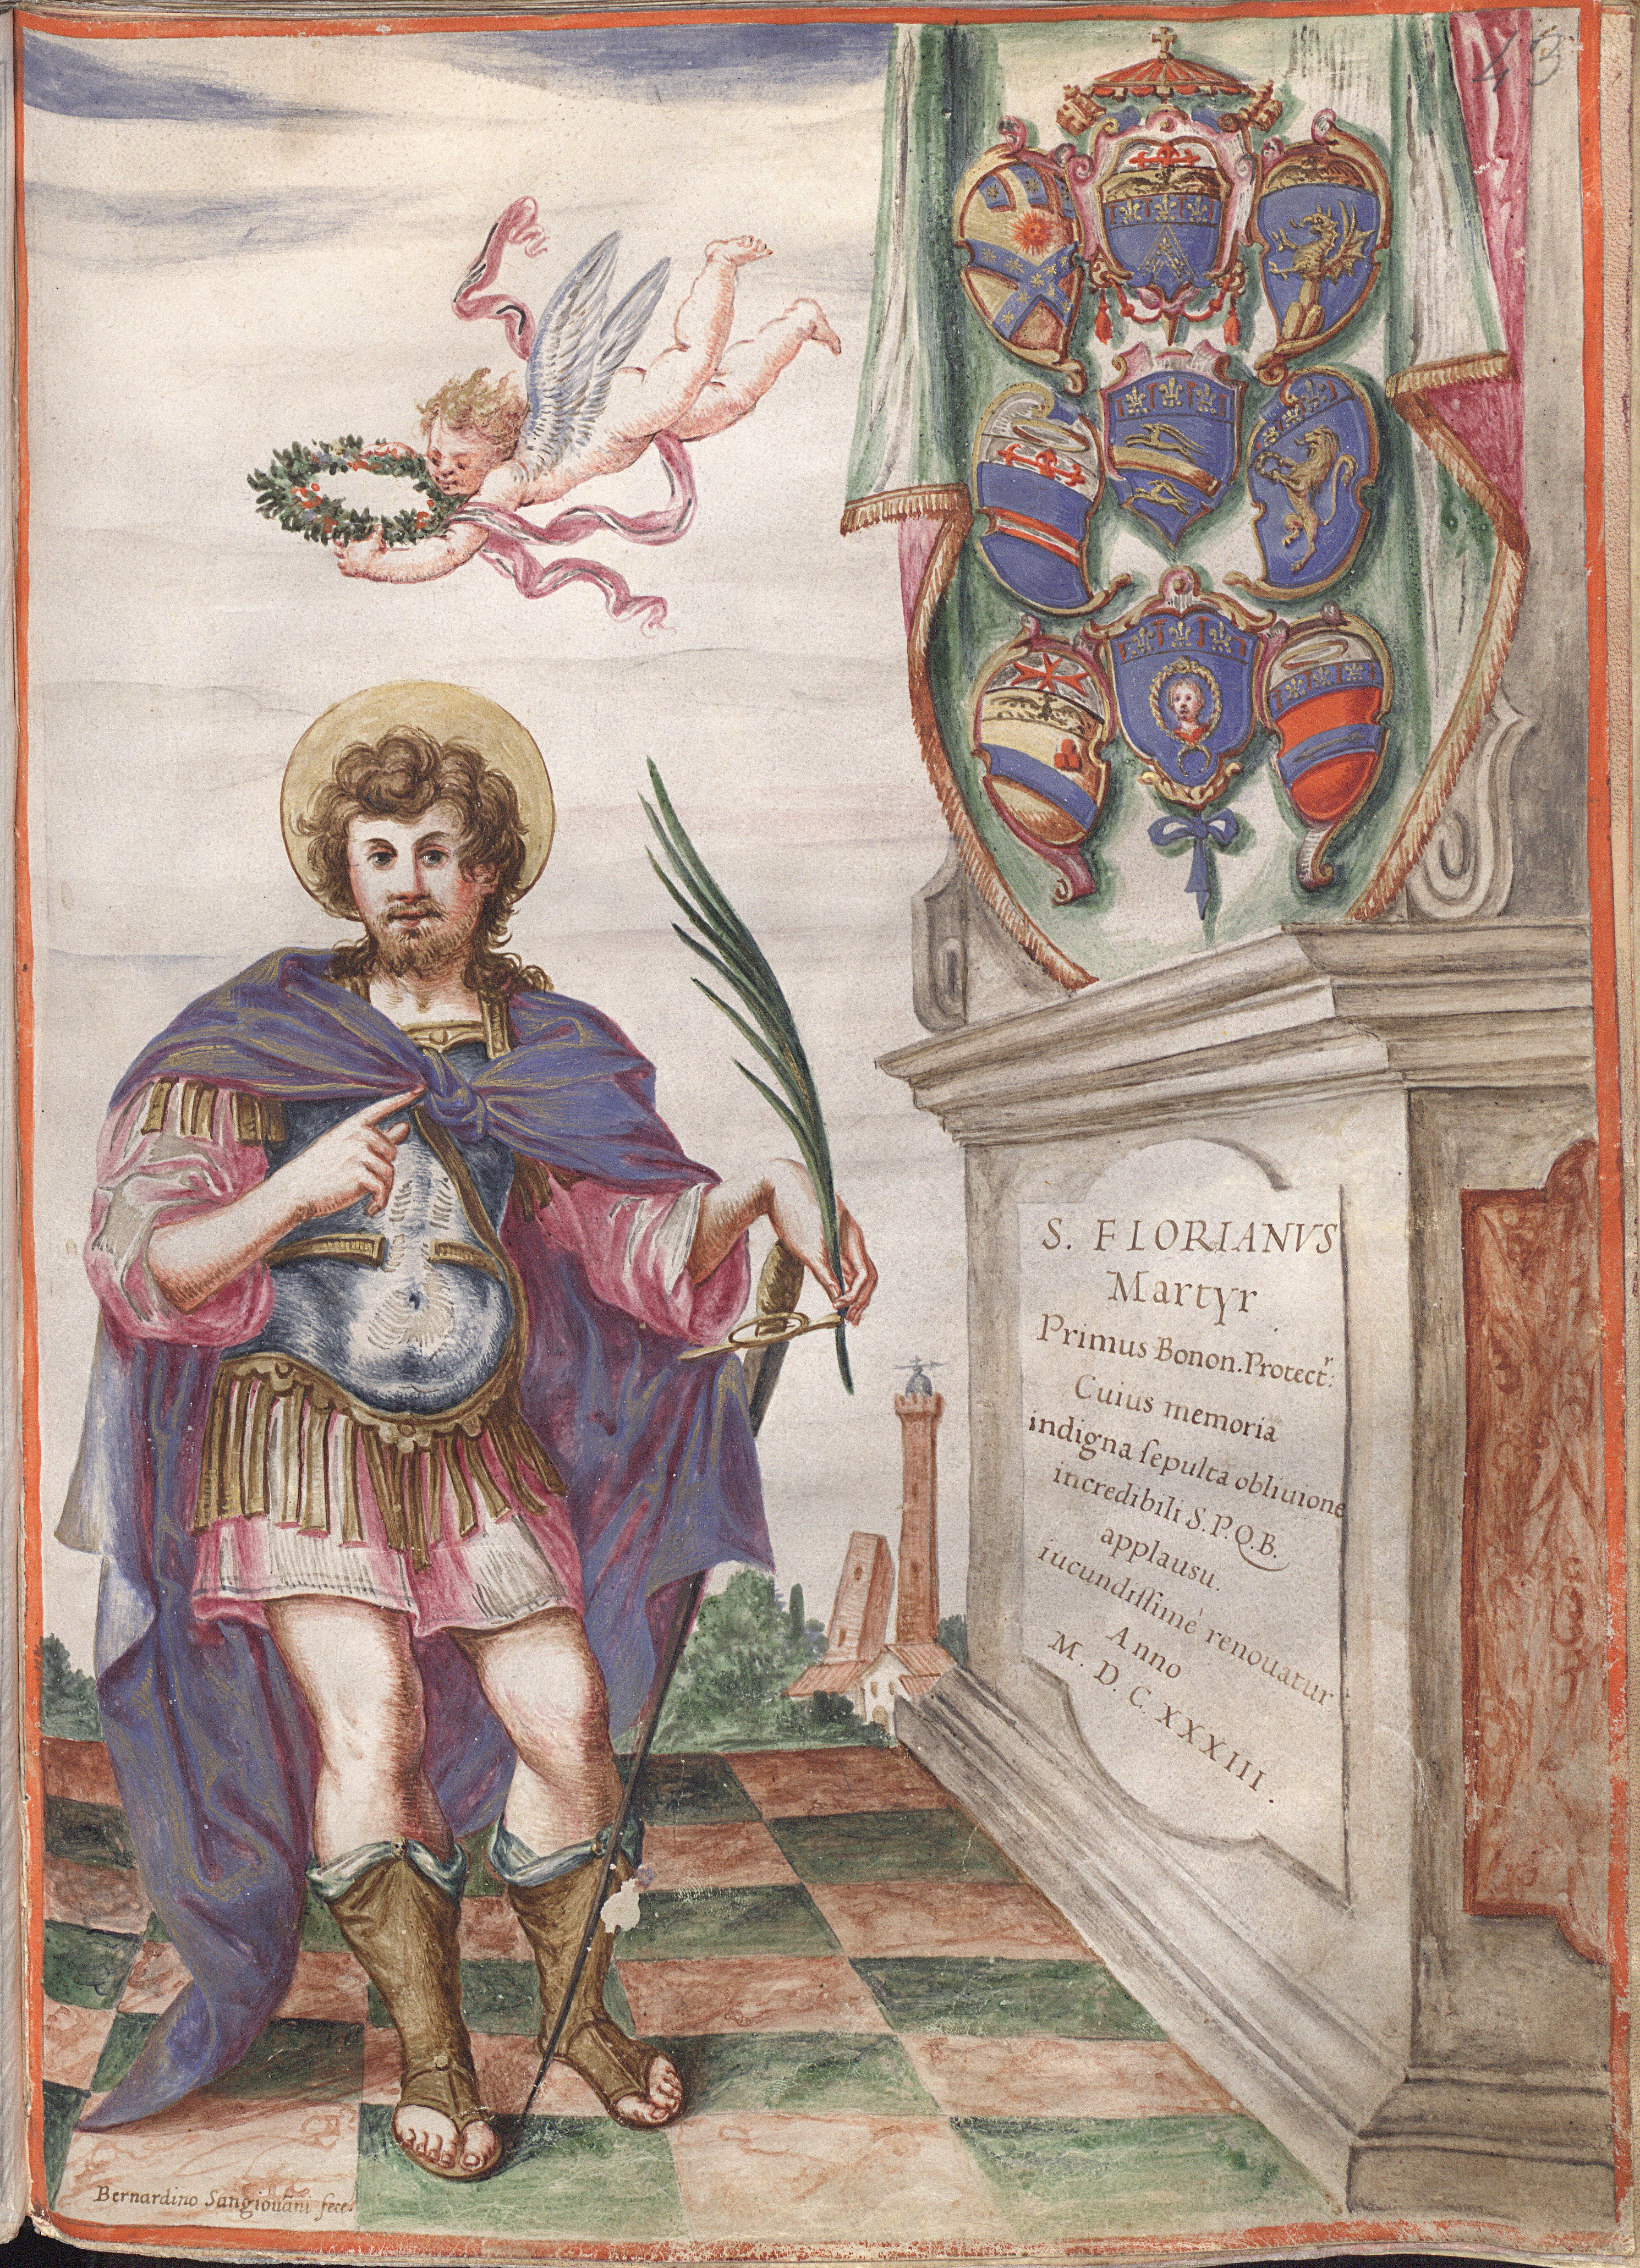 43
S. FLORIANVS
Martyr
Primus Bonon. Protectr:
Cuius memoria
indigna ſepulta obliuione
incredibili S.P.Q.B.
applausu.
iucundiſſimè renouatur
Anno
M. D. C. XXXIII.
Bernardino Sangiouāni fece.